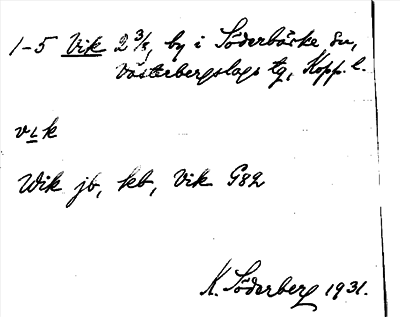 1-5 Vik 2 3/8, by i Söderbärke sn,
Västerbergslags tg, Kopp. l.
vik
Wik jb, kb, Vik G82
K. Söderberg 1931.